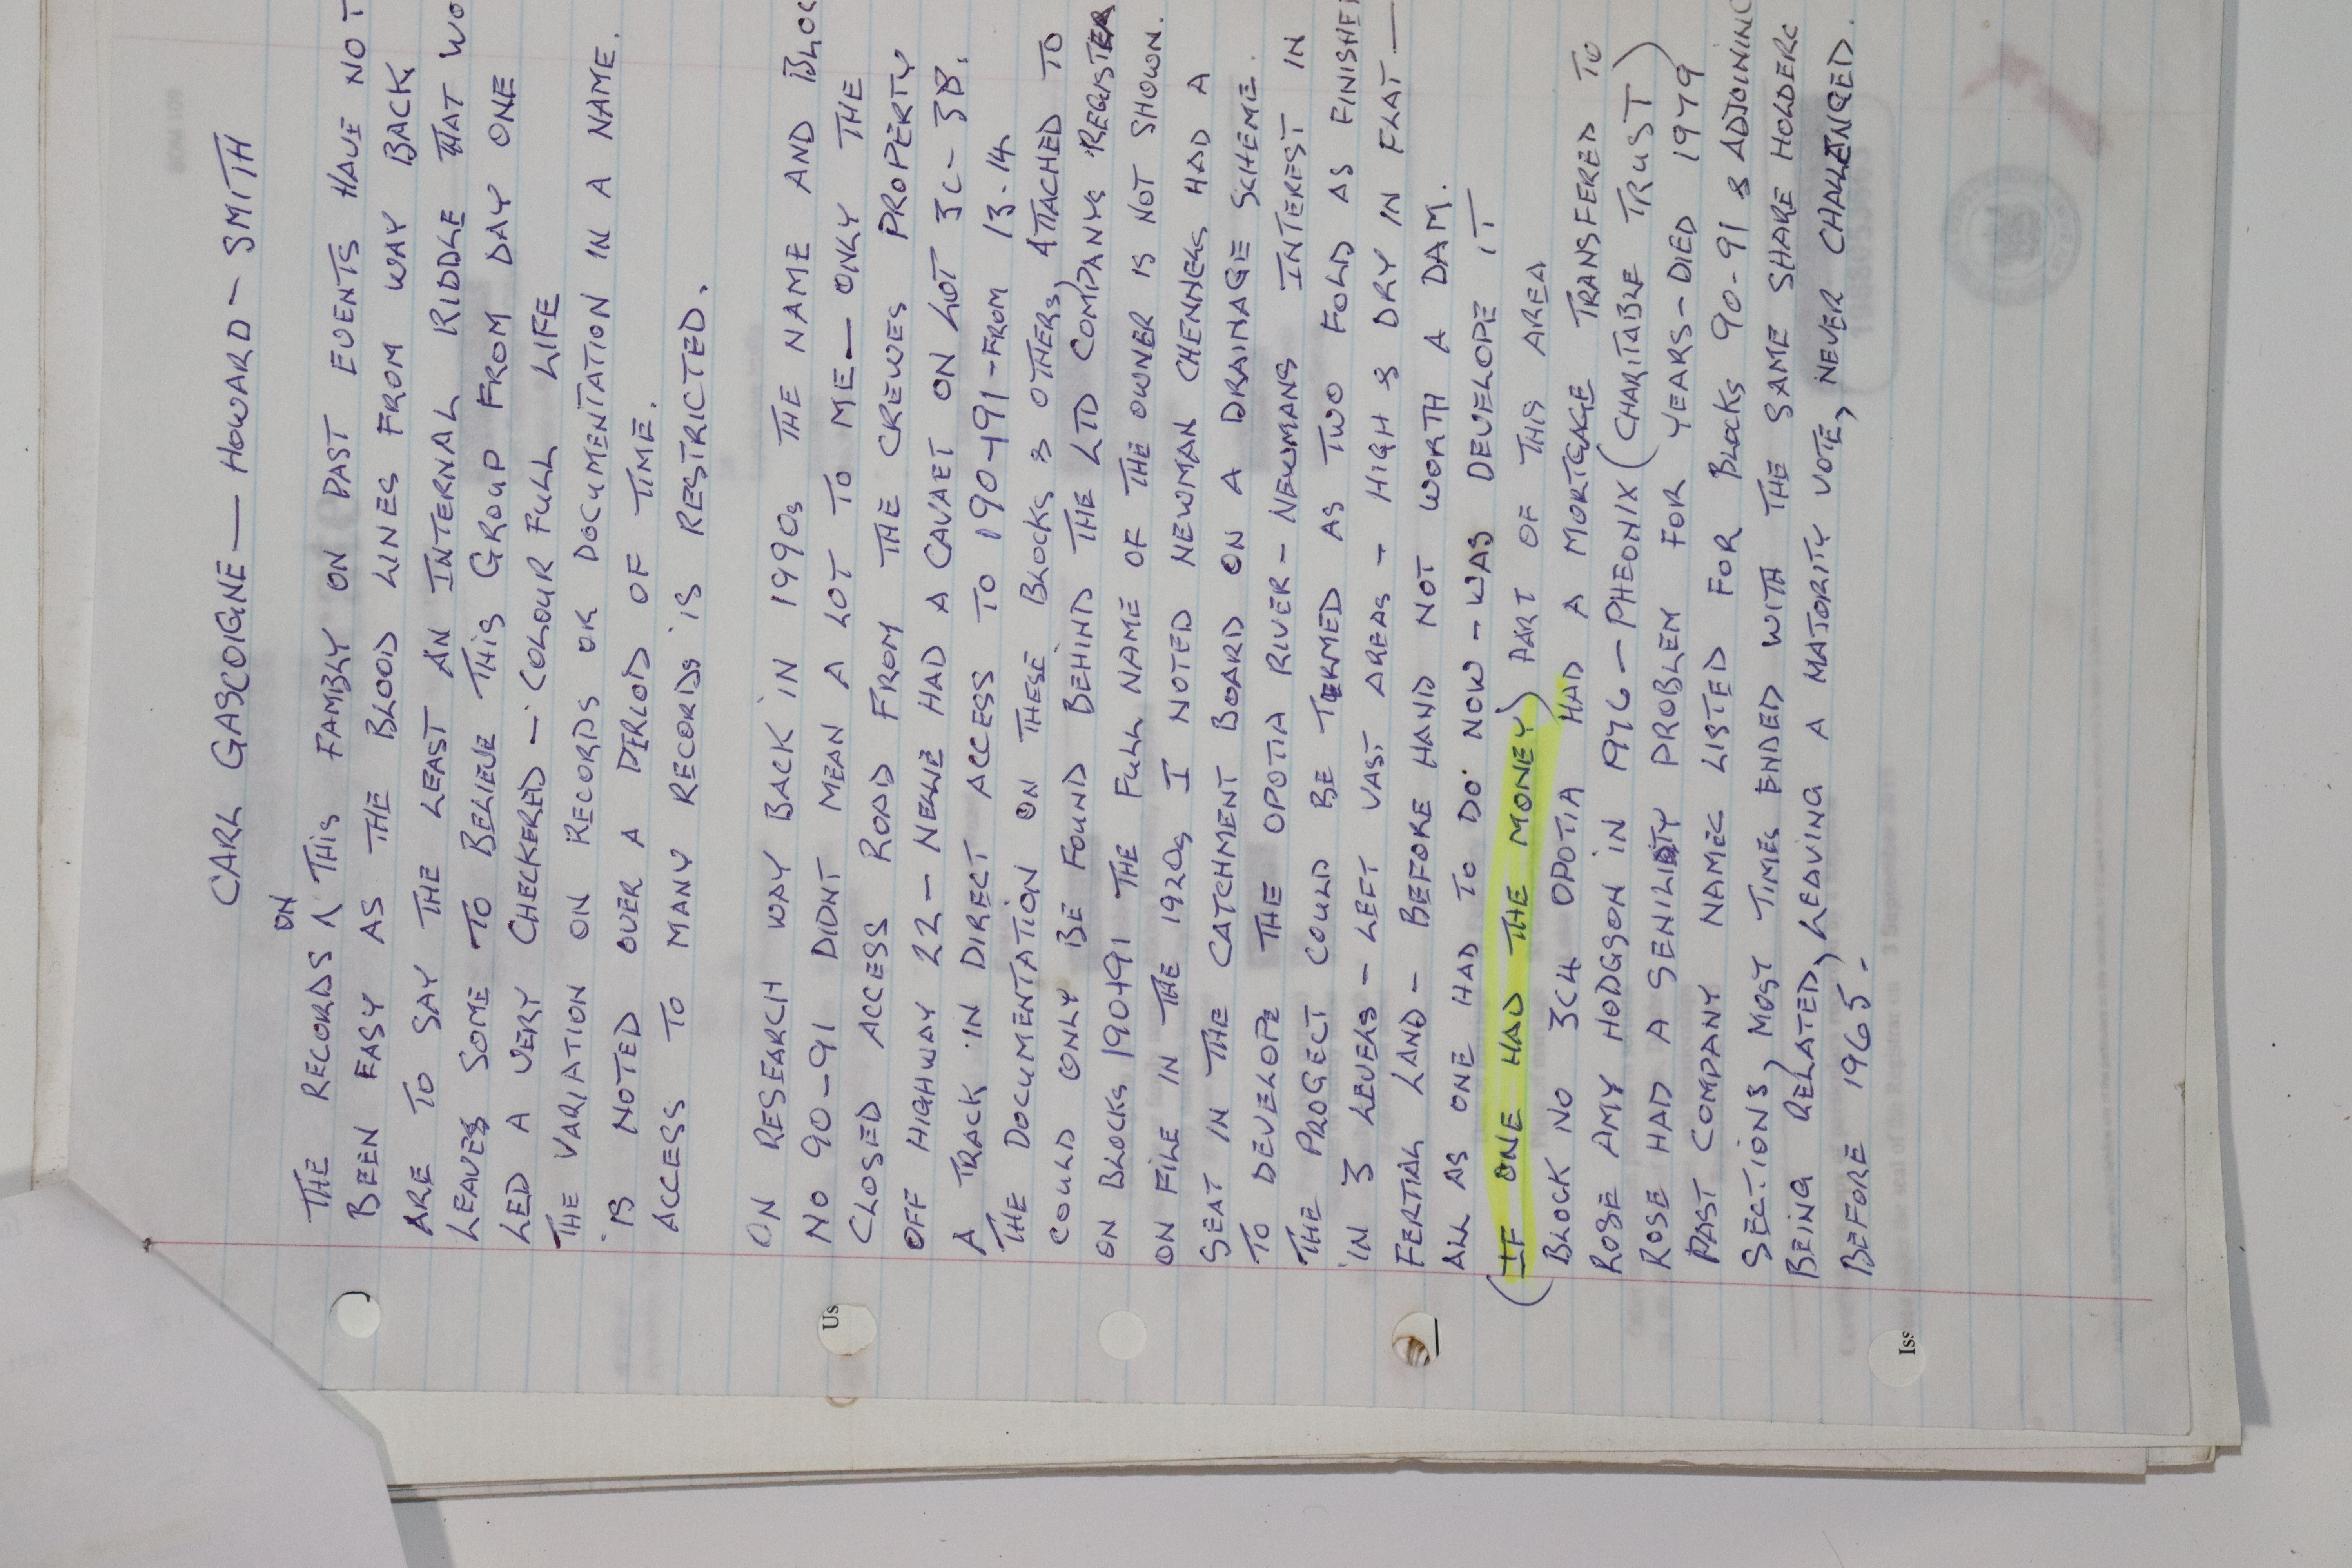 CARL GASCOIGNE — HOWARD - SMITH
ON
THE RECORDS ^ THIS FAMILY ON PAST EVENTS HAVE NOT
BEEN EASY AS THE BLOOD LINES FROM WAY BACK
ARE TO SAY THE LEAST AN INTERNAL RIDDLE THAT WO
LEAVES SOME TO BELIEVE THIS GROUP FROM DAY ONE
LED A VERY CHECKERED - COLOUR FULL LIFE
THE VARIATION ON RECORDS OR DOCUMENTATION IN A NAME.
IS NOTED OVER A PERIOD OF TIME.
ACCESS TO MANY RECORDS IS RESTRICTED.
ON RESEARCH WAY BACK IN 1990s THE NAME AND BLOC
NO 90-91 DIDNT MEAN A LOT TO ME — ONLY THE
CLOSED ACCESS ROAD FROM THE CREWES PROPERTY
OFF HIGHWAY 22 - NELLIE HAD A CAVAET ON LOT 3C - 3B.
A TRACK IN DIRECT ACCESS TO 190+91 - FROM 13.14
THE DOCUMENTATION ON THESE BLOCKS & OTHERS, ATTACHED TO
COULD ONLY BE FOUND BEHIND THE LTD COMPANYS REGISTER
ON BLOCKS 190+91 THE FULL NAME OF THE OWNER IS NOT SHOWN.
ON FILE IN THE 1920s I NOTED NEWMAN CHENNELS HAD A
SEAT IN THE CATCHMENT BOARD ON A DRAINAGE SCHEME.
TO DEVELOPE THE OPOTIA RIVER - NEWMANS INTEREST IN
THE PROGECT COULD BE TERMED AS TWO FOLD AS FINISHE
IN 3 LEVERS - LEFT VAST AREAS - HIGH & DRY IN FLAT —
FERTIAL LAND - BEFORE HAND NOT WORTH A DAM.
ALL AS ONE HAD TO DO NOW - WAS DEVELOPE IT
(IF ONE HAD THE MONEY) PART OF THIS AREA
BLOCK NO 3C4 OPOTIA HAD A MORTGAGE TRANSFERED TO
ROSE AMY HODGSON IN 1976 - PHEONIX (CHARITABLE TRUST)
ROSE HAD A SENILITY PROBLEM FOR YEARS - DIED 1979
PAST COMPANY NAMES LISTED FOR BLOCKS 90-91 & ADJOINING
SECTIONS, MOST TIMES ENDED WITH THE SAME SHARE HOLDERS
BEING RELATED, LEAVING A MAJORITY VOTE, NEVER CHALLENGED.
BEFORE 1965.
Us
Iss